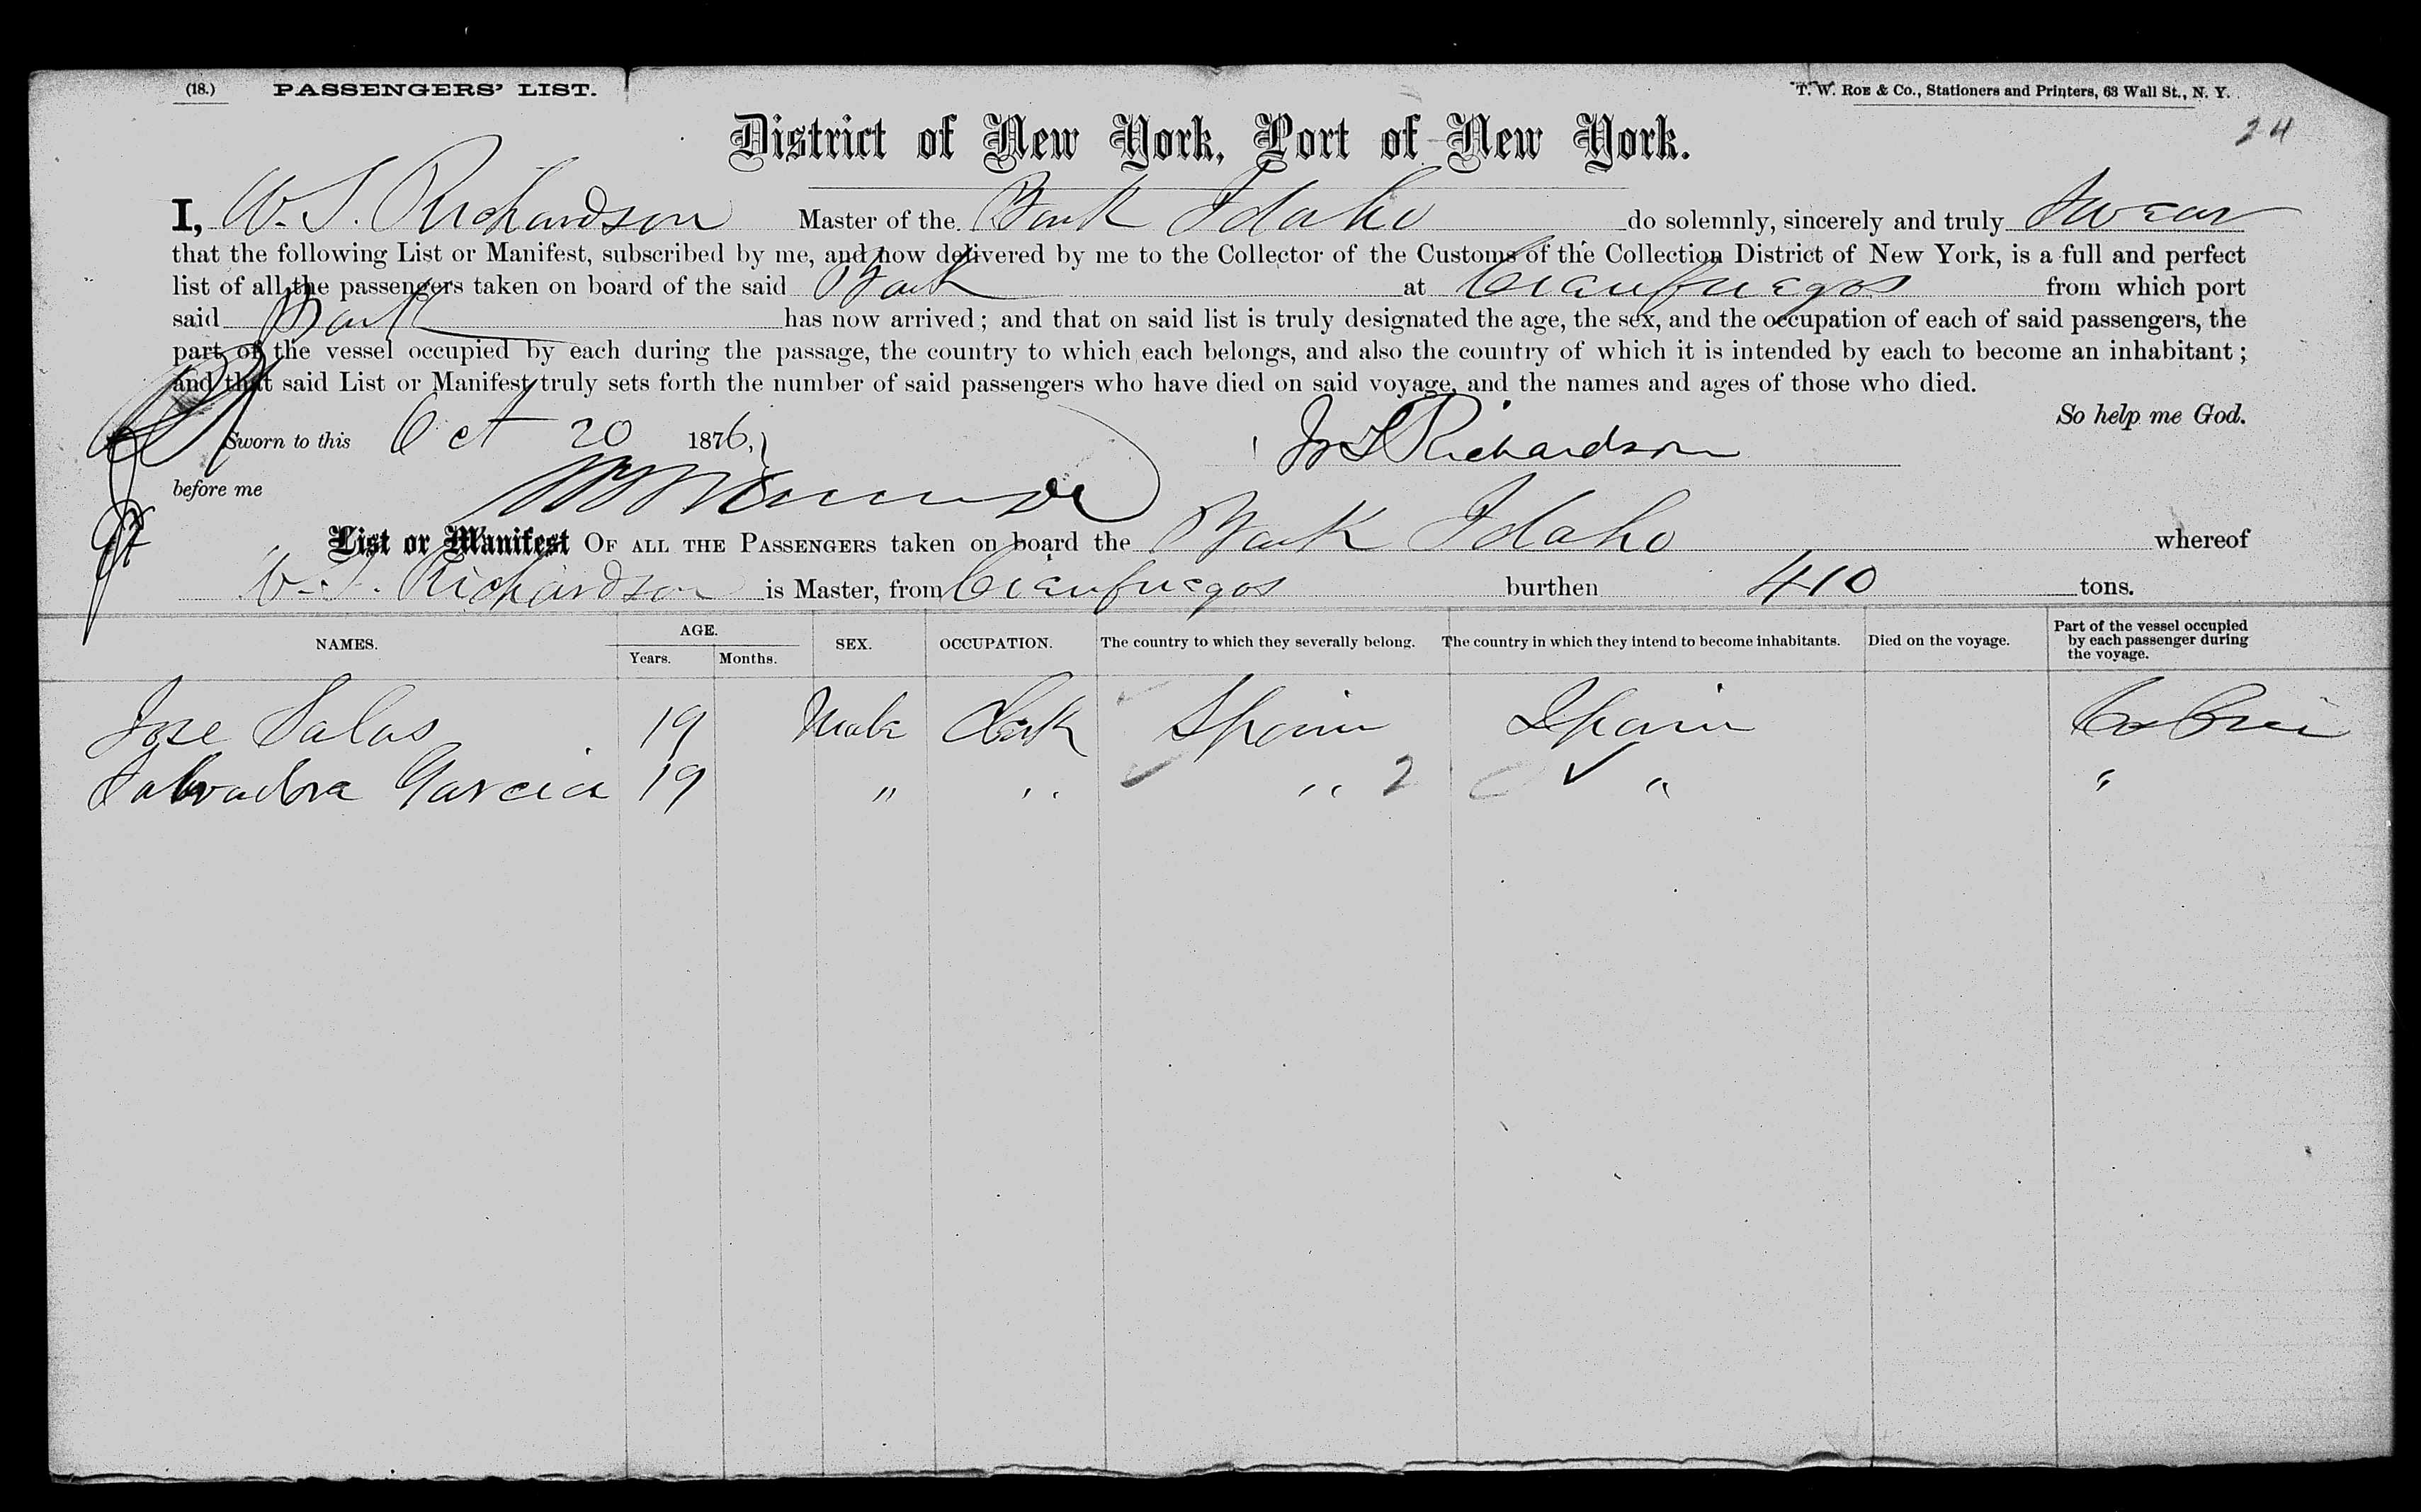 (18.) PASSENGERS' LIST. T. W. ROE & Co., Stationers and Printers, 63 Wall St., N. Y.
24
District of New York, Port of New York.
I, W. S. Richardson Master of the Bark Idaho do solemnly, sincerely and truly Swear
that the following List or Manifest, subscribed by me, and now delivered by me to the Collector of the Customs of the Collection District of New York, is a full and perfect
list of all the passengers taken on board of the said Bark at Cienfuegos from which port
said Bark has now arrived; and that on said list is truly designated the age, the sex, and the occupation of each of said passengers, the
part of the vessel occupied by each during the passage, the country to which each belongs, and also the country of which it is intended by each to become an inhabitant;
and that said List or Manifest truly sets forth the number of said passengers who have died on said voyage, and the names and ages of those who died.
So help me God.
Sworn to this Oct 20 1876, W S Richardson
before me
List or Manifest OF ALL THE PASSENGERS taken on board the Bark Idaho whereof
W. S. Richardson is Master, from Cienfuegos burthen 410 tons.
NAMES. AGE. Years. Months. SEX. OCCUPATION. The country to which they severally belong. The country in which they intend to become inhabitants. Died on the voyage. Part of the vessel occupied by each passenger during the voyage.
Jose Salas 19 Male Clerk Spain Spain Cabin
Salvadora Garcia 19 " " " 2 ✓ " "